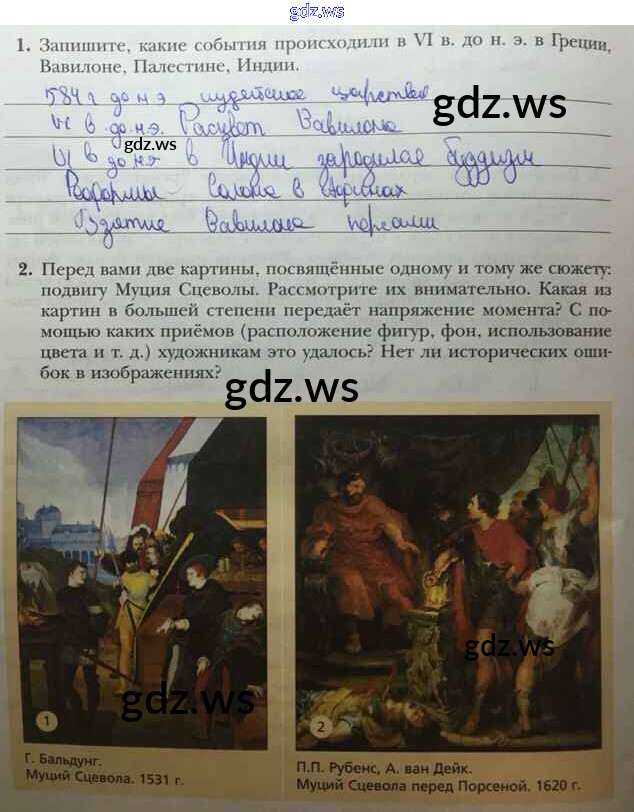 gdz.ws
1. Запишите, какие события происходили в VI в. до н. э. в Греции,
Вавилоне, Палестине, Индии.
584 г до н э иудейское царство
gdz.ws
VI в до.н.э. Расцвет Вавилона
gdz.ws
VI в до н.э в Индии зародился буддизм
Реформы Солона в Афинах
Взятие Вавилона персами
2. Перед вами две картины, посвящённые одному и тому же сюжету:
подвигу Муция Сцеволы. Рассмотрите их внимательно. Какая из
картин в большей степени передаёт напряжение момента? С по-
мощью каких приёмов (расположение фигур, фон, использование
цвета и т. д.) художникам это удалось? Нет ли исторических оши-
бок в изображениях?
gdz.ws
gdz.ws
gdz.ws
gdz.ws
1
2
Г. Бальдунг.
Муций Сцевола. 1531 г.
П.П. Рубенс, А. ван Дейк.
Муций Сцевола перед Порсеной. 1620 г.